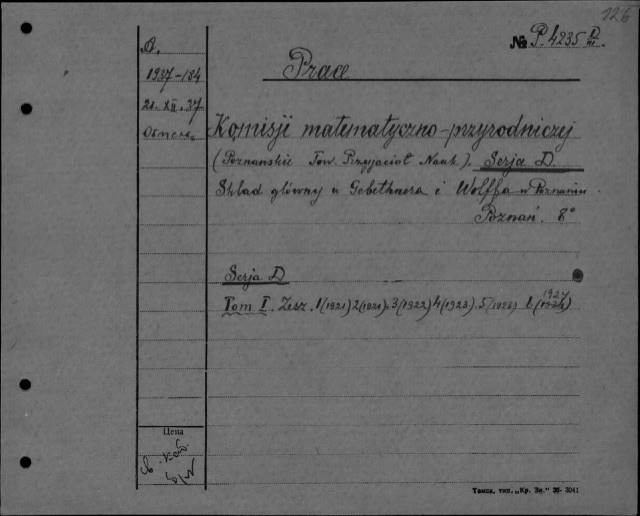 126
№ P. 4235 D/III.
D.
1937-184
21.XII.37
Prace
Komisji matematyczno-przyrodniczej
(Poznanskie Tow. Przyjaciół Nauk). Serja D.
Skład główny u Gebethnera i Wolffa w Poznaniu.
Poznań. 8°
Serja D
Tom I. Zesz. 1(1921) 2(1921). 3(1922) 4(1923). 5
1927
Цена
Томск, тип. „Кр. Зн." 36- 3041